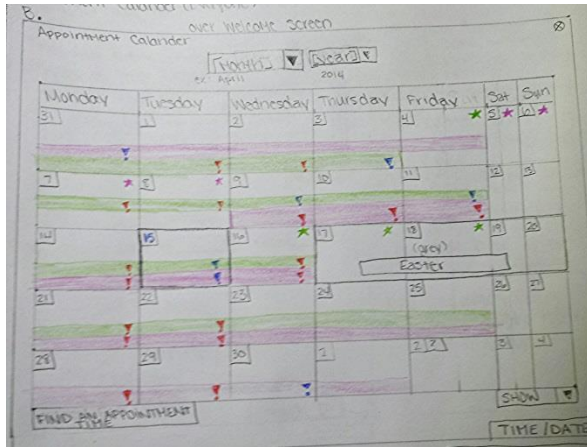 B.
over Welcome Screen
Appointment Calander
[Month] [year]
ex. April 2014
Monday Tuesday Wednesday Thursday Friday Sat Sun
31 1 2 3 4 5 6
7 8 9 10 11 12 13
14 15 16 17 18 19 20
(grey)
Easter
21 22 23 24 25 26 27
28 29 30 1 2 3 4
FIND AN APPOINTMENT
TIME
SHOW
TIME/DATE